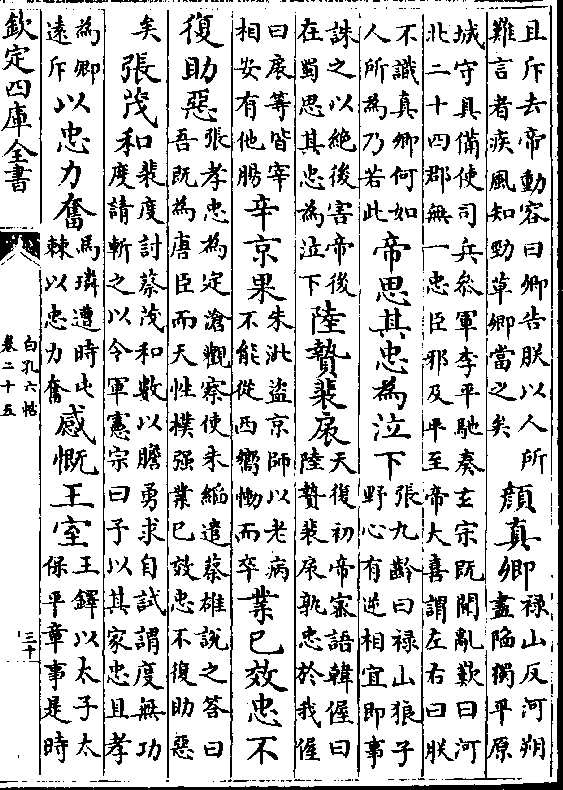 且斥去帝動容曰卿告朕以人所
難言者疾風知勁草卿當之矣
顔真卿
禄山反河朔
盡陥獨平原
城守具備使司兵叅軍李平馳奏玄宗既聞亂歎曰河
北二十四郡無一忠臣邪及平至帝大喜謂左右曰朕
不識真卿何如
人所為乃若此
帝思其忠為泣下
張九齡曰禄山狼子
野心有逆相宜即事
誅之以絶後害帝後
在蜀思其忠為泣下
陸贄裴扆
天復初帝宻語韓偓曰
陸贄裴扆孰忠於我偓
曰扆等皆宰
相安有他腸
辛京果
朱泚盜京師以老病
不能從西嚮慟而卒
業已效忠不
復助惡
張孝忠為定滄觀察使朱縚遣蔡雄說之答曰
吾既為唐臣而天性樸强業已效忠不復助惡
矣
張茂和
裴度討蔡茂和數以膽勇求自試謂度無功
度請斬之以令軍憲宗曰予以其家忠且孝
為卿
遠斥
以忠力奮
馬璘遭時屯
棘以忠力奮
感慨王室
王鐸以太子太
保平章事是時
欽定四庫全書
白孔六帖
卷二十五
三十